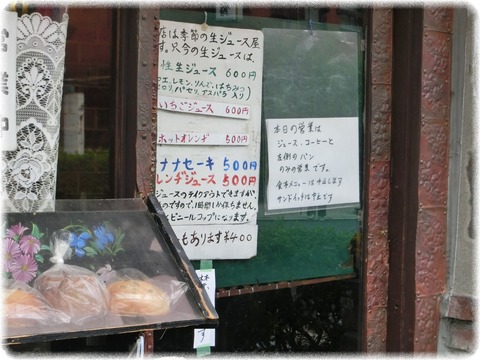 店は季節の生ジュース屋
す。只今の生ジュースは、
性生ジュース 600円
エ、レモン、りんご、はちみつ
セロリ、パセリ、アスパラ 入り
いちごジュース 600円
ホットオレンヂ 500円
ナナセーキ 500円
レンヂジュース 500円
ジュースのテイクアウトできますが
ものですので、1時間しか持ちません。
ビニールコップになります。
もあります ¥400
本日の営業は
ジュース・コーヒーと
左側のパン
のみの営業です。
食事メニューは中止します
サンドイッチは中止です
営業中